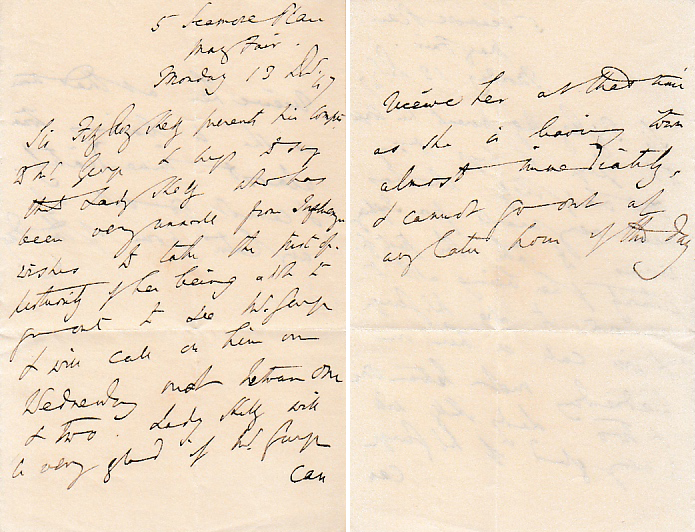 5 Seamore Place
May Fair.
Monday 13 Dec. 47
Sir Percy Shelley presents his Comp.
to Mr. George & begs to say
that Lady Shelley who has
been very unwell from Influenza
wishes to take the first op-
portunity of her being able to
go out to see Mr. George
& will call on him on
Wednesday next between one
& two. Lady Shelley will
be very glad if Mr. George
can
receive her at that time
as she is leaving town
almost immediately,
& cannot go out at
any later hour of the day